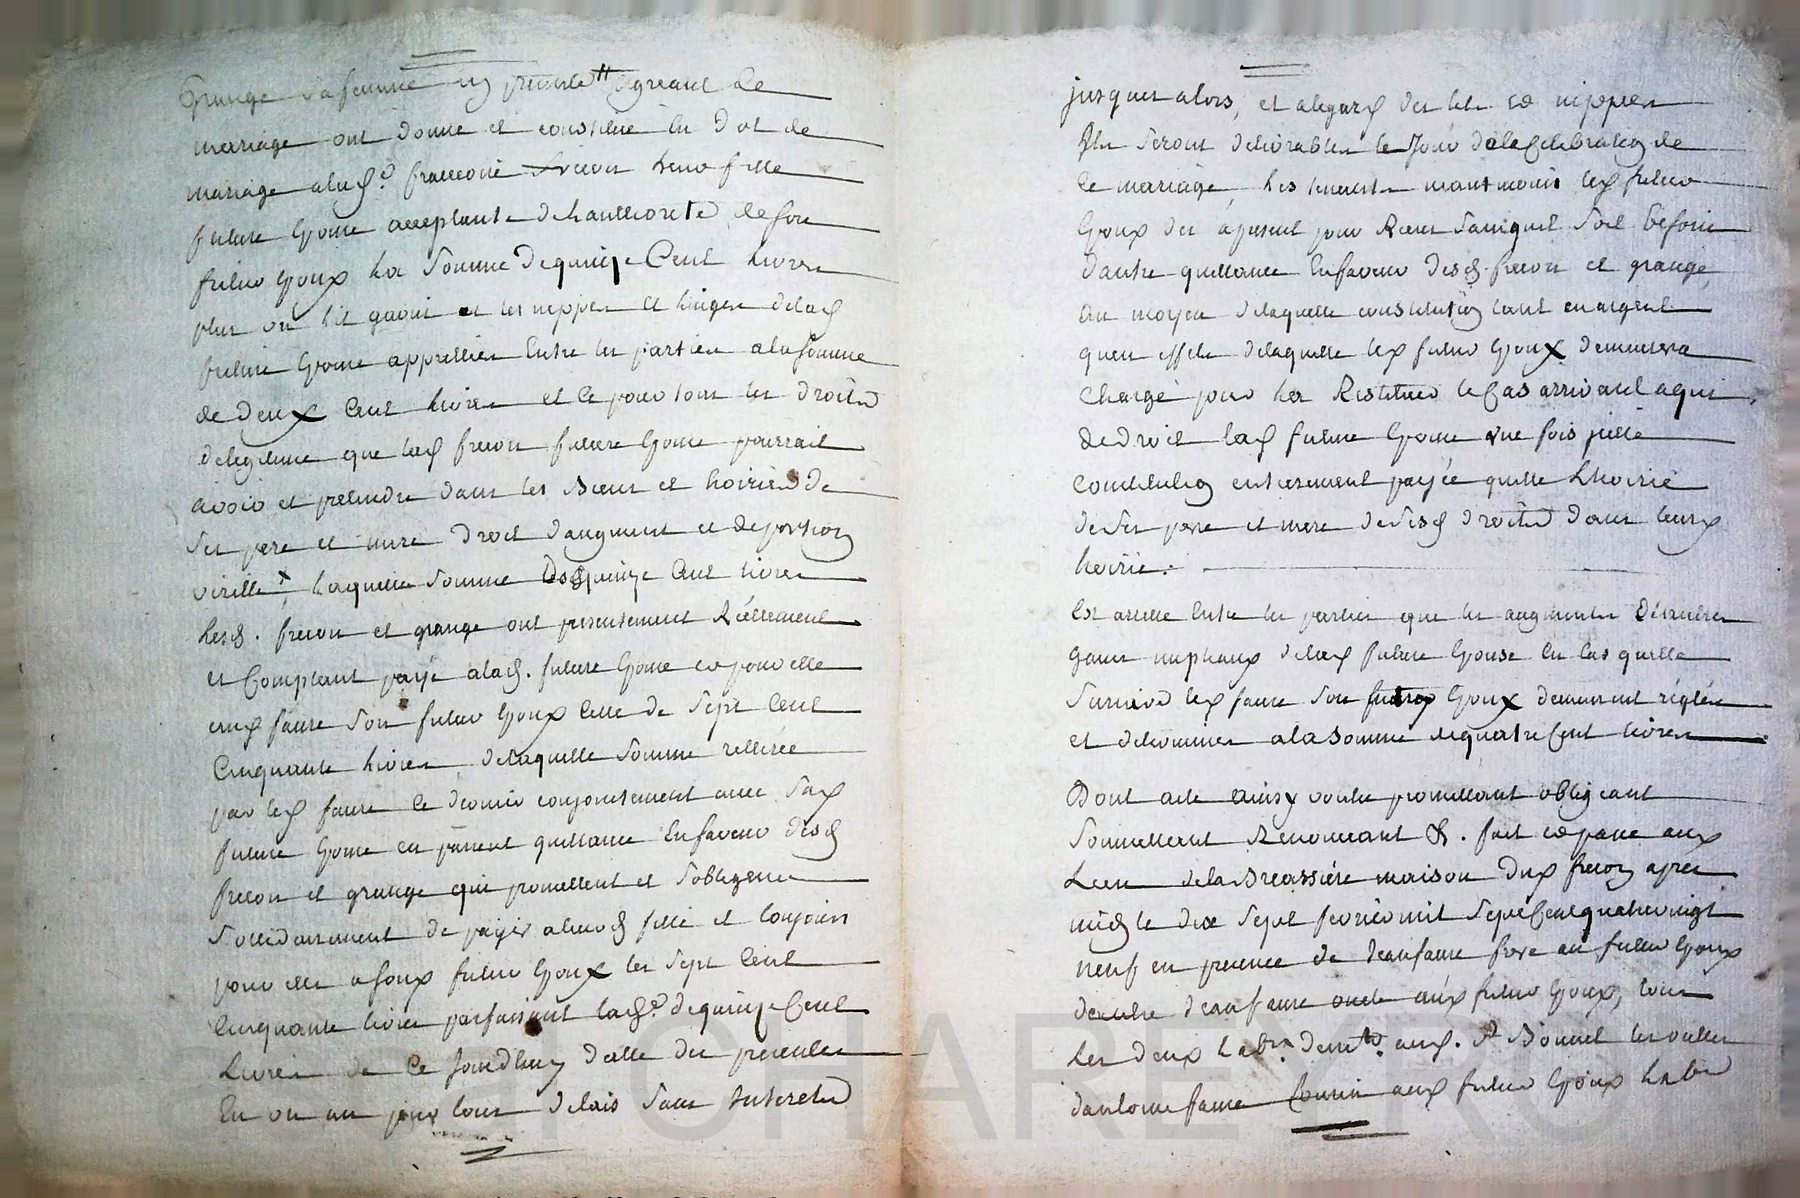 Grange sa femme en present agreant le
mariage ont donné et constitué en dot de
mariage alad.e francoise frecon leur fille
future Epouse acceptante de lauthorité de son
futur Epoux la somme de quinze Cent livres
plus un lit garni et les nippes et linges delad
future Epouse appretiés Entre les parties a la somme
de deux Cent livres et ce pour tous les droits
de legitime que lad frecon future Epouse pourrait
avoir et pretendre dans les Biens et hoiries de
ses pere et mere droit d'augment et de portion
virille, laquelle somme de quinze Cent livres
lesd. frecon et grange ont presentement Réellement
et Comptant payé alad. future Epouse et pour elle
aud faure son futur Epoux Celle de sept Cent
Cinquante livres, de laquelle somme retirée
par led faure ce dernier conjointement avec lad
future Epouse en passent quittance En faveur desd
frecon et grange qui promettent et s'obligent
sollidairement de payer a leurd fille et Conjoin
pour elle a sond futur Epoux les sept Cent
Cinquante livres parfaisant lad.e de quinze Cent
Livres de Ce Jourdhuy datte des presentes
En un an pour tous delais sans Interets
jusques alors, et alegard des lit et nippes
Ils seront delivrables le Jour de la Celebration de
ce mariage, les tenants neantmoins led futur
Epoux des apresent pour Reçus sans quil soit besoin
dautre quittance En faveur desd. frecon et grange,
au moyen de laquelle constitution tant en argent
quen effets de laquelle led futur Epoux demeurera
Chargé pour les Restituer le Cas arrivant a qui
de droit lad future Epouse une fois ditte
Constitution entierement payée quitte Lhoirie
de ses pere et mere de sesd droits dans leurs
hoirie.
Est aresté Entre les parties que les augments Et survies
gains nuptiaux delad future Epouse En Cas quelle
survive led faure son futur Epoux demeurent réglés
et determinés a la somme de quatre Cent livres
Dont acte Ainsy voulu promettant obligeant
soumettant Renonceant &. fait et passé aux
Lieu de la Breassiére maison dud frecon apres
midy le dix sept fevrier mil sept Cent quatre vingt
neuf en presence de Jean faure frere au futur Epoux
dautre Jean faure oncle aud futur Epoux, tous
Les deux habts. aud. St Bonnet les oulles
dantoine faure Cousin aud futur Epoux habt